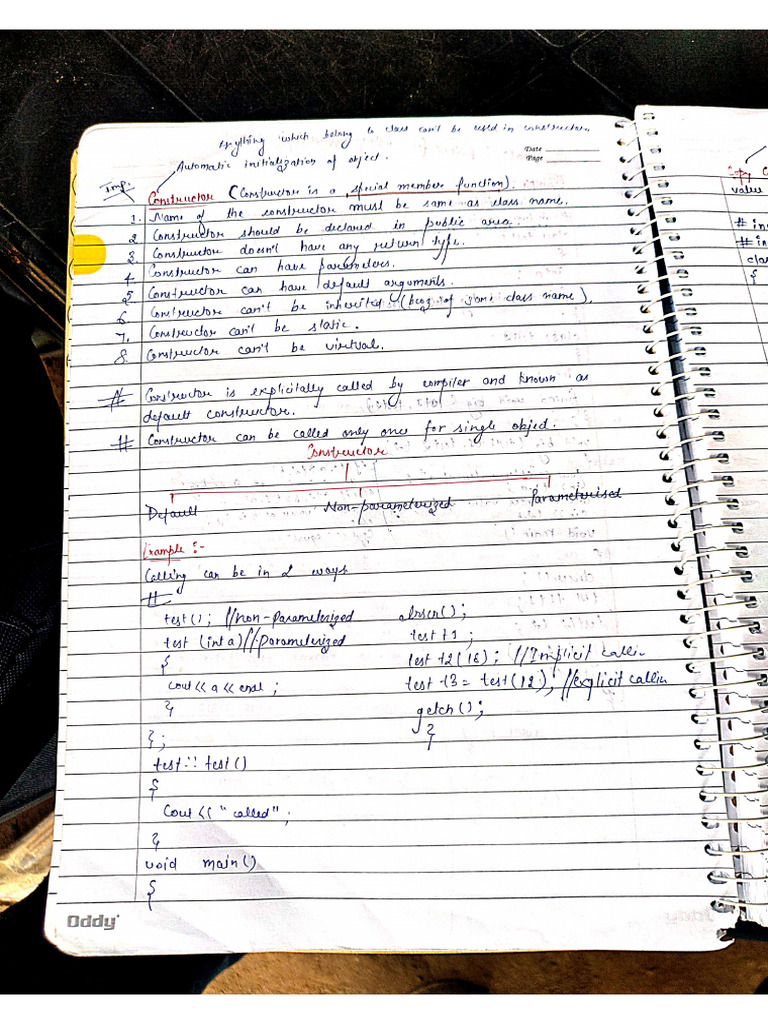 Anything which belong to class can't be used in constructor.
Automatic initialization of object.
Date
Page
Imp.
Constructor (Constructor is a special member function).
1. Name of the constructor must be same as class name.
2 Constructor should be declared in public area.
3. Constructor doesn't have any return type.
4. Constructor can have parameters.
5 Constructor can have default arguments.
6 Constructor can't be inherited (bcoz of same class name).
7. Constructor can't be static.
8. Constructor can't be virtual.
# Constructor is explicitally called by compiler and known as
default constructor.
# Constructor can be called only once for single object.
Constructor
Default Non-parameterized Parameterised
Example :-
Calling can be in 2 ways
#
test(); //non-parameterized
test (int a)//parameterized
{
cout << a << endl ;
}
};
test :: test()
{
Cout << "called";
}
void main()
{
clrscr();
test t1 ;
test t2(16); //Implicit callin
test t3 = test(12); //explicit callin
getch();
}
Oddy
value
# in
# in
cla
{